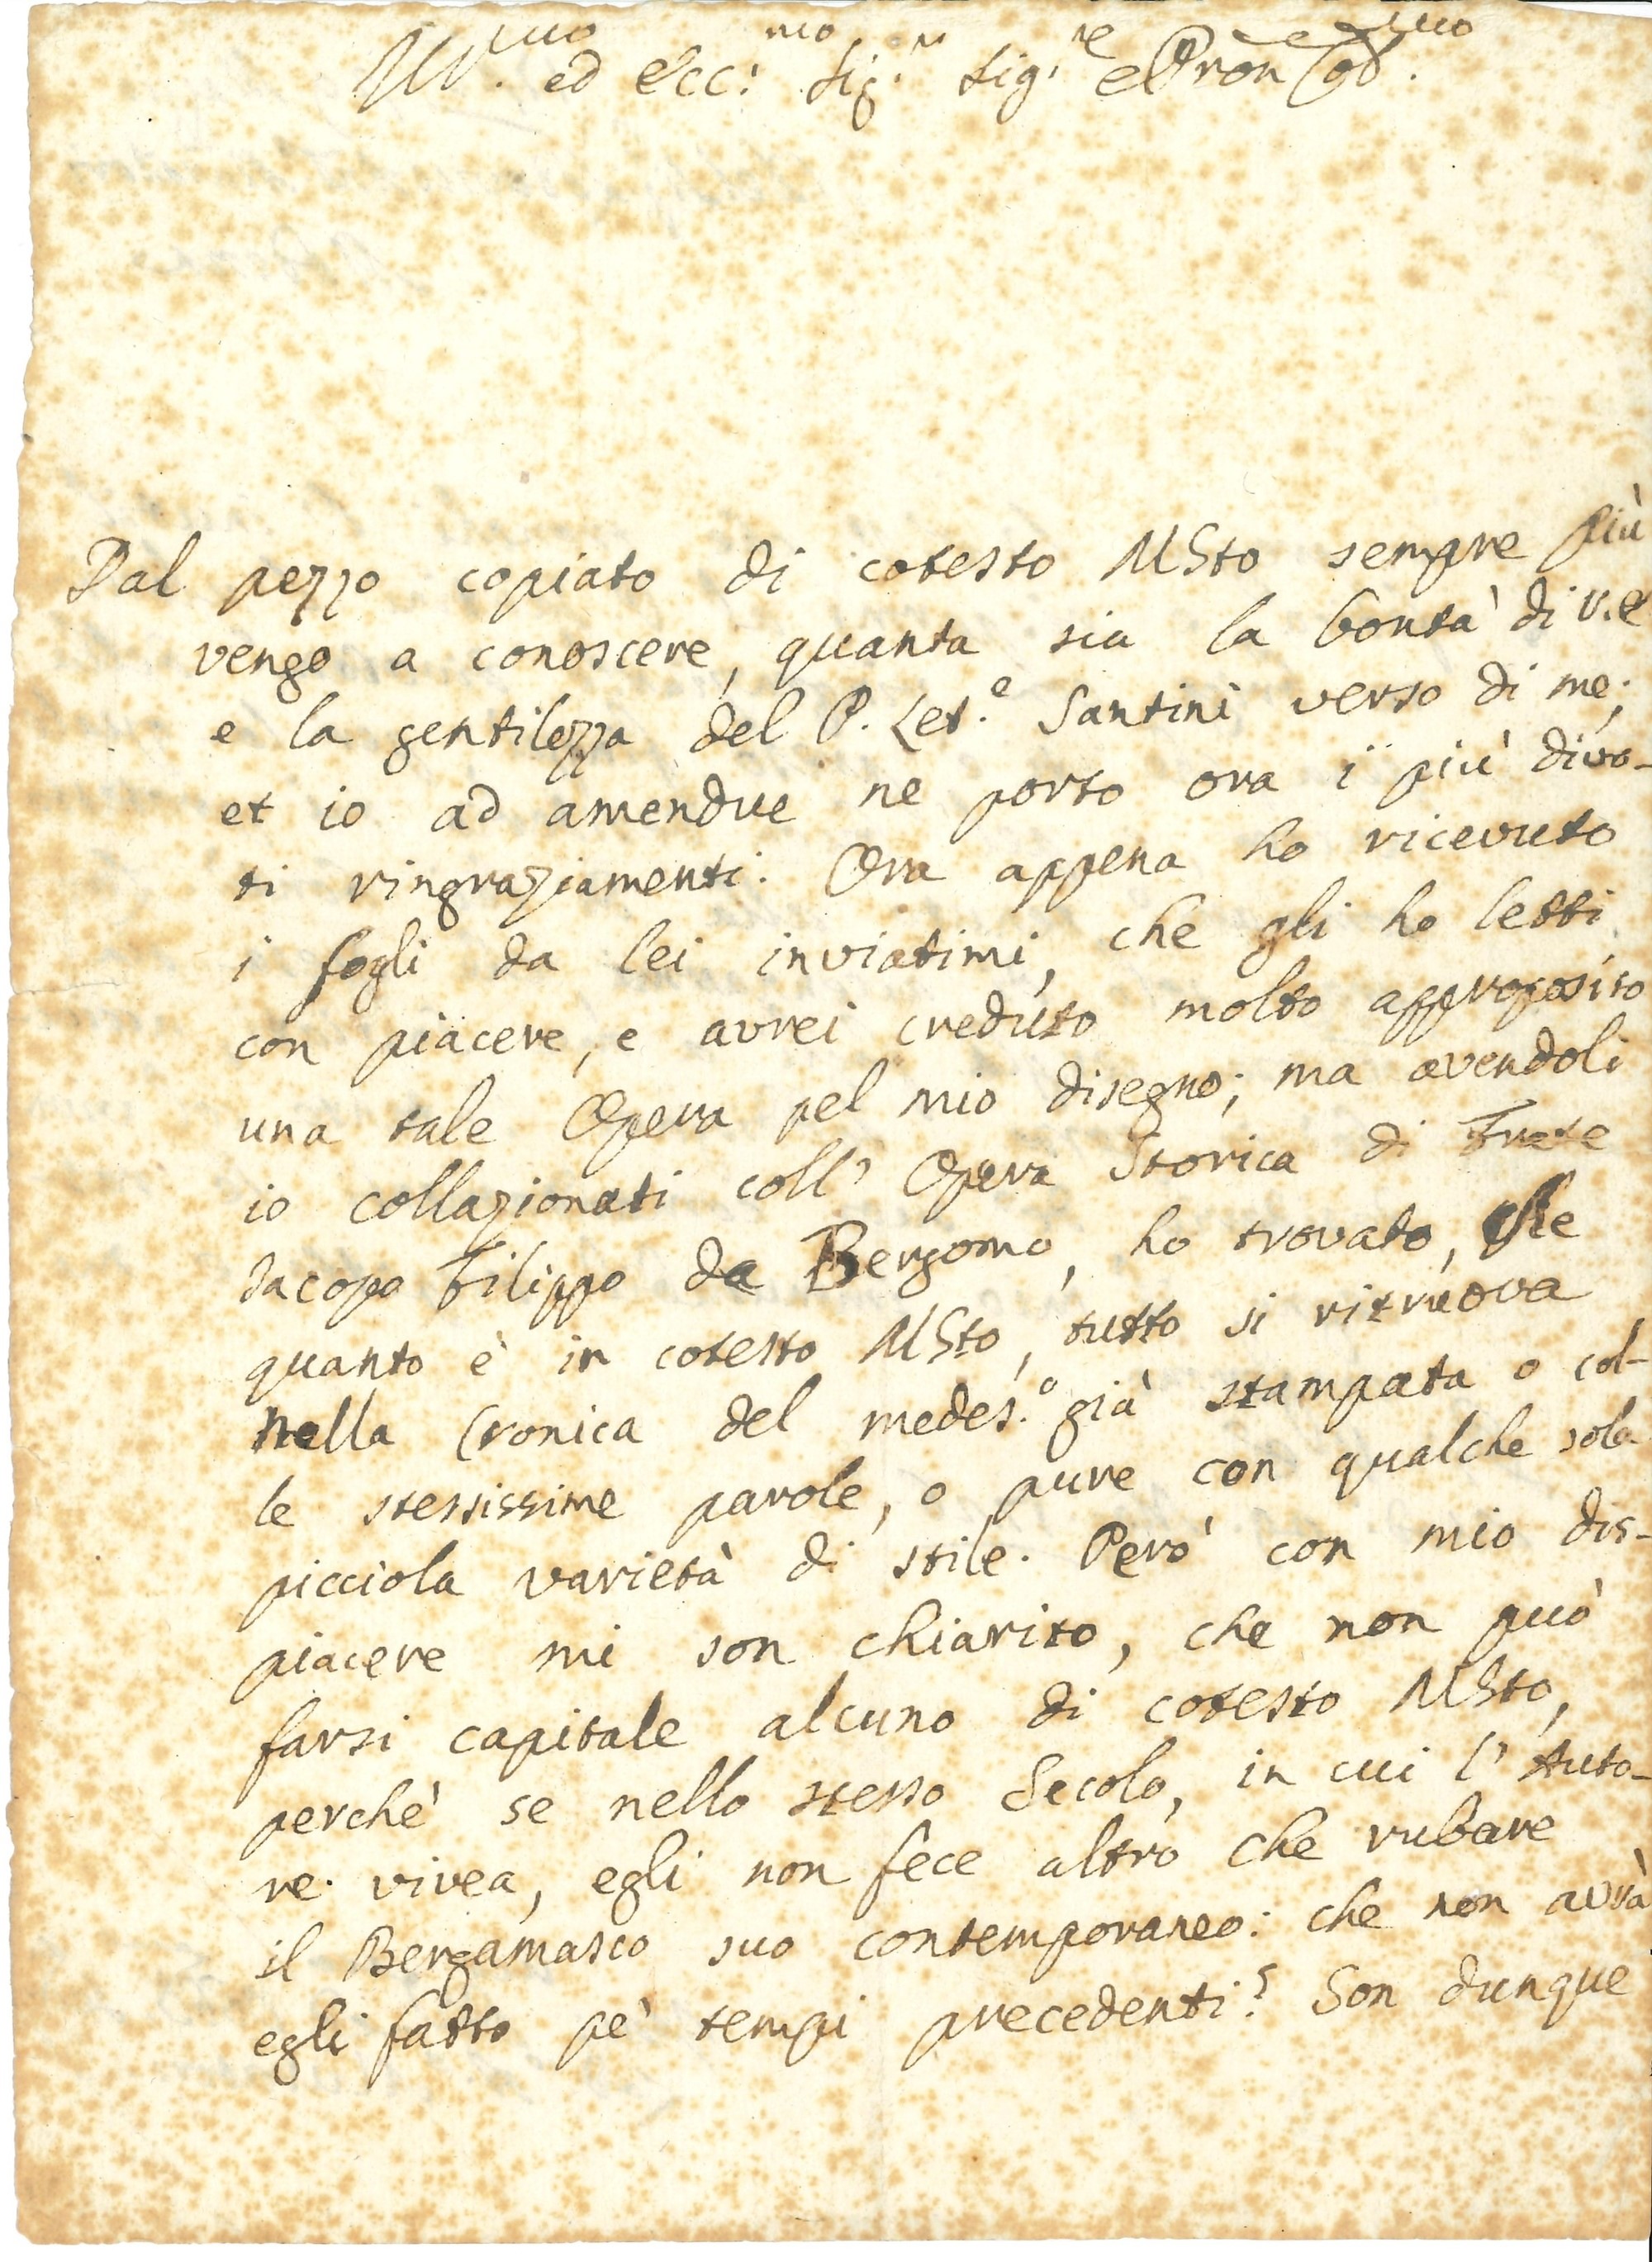 Ill.mo ed Ecc.mo Sig.r Sig.re e Pron Col.mo
Dal pezzo copiato di cotesto MSto sempre più
vengo a conoscere, quanta sia la bontà di V.E
e la gentilezza del P. Let.e Santini verso di me;
et io ad amendue ne porto ora i più divo-
ti ringraziamenti. Ora appena ho ricevuto
i fogli da lei inviatimi, che gli ho letti
con piacere, e avrei creduto molto approposito
una tale Opera pel mio disegno; ma avendoli
io collazionati coll' Opera Storica di Frate
Jacopo Filippo da Bergomo, ho trovato, che
quanto è in cotesto MSto, tutto si ritruova
nella Cronica del medes.o già stampata o col-
le stessissime parole, o pure con qualche sola
picciola varietà di stile. Però con mio dis-
piacere mi son chiarito, che non può
farsi capitale alcuno di cotesto MSto,
perchè se nello stesso Secolo, in cui l' Auto-
re vivea, egli non fece altro che rubare
il Bergamasco suo contemporaneo: che non avrà
egli fatto pe' tempi precedenti? Son dunque